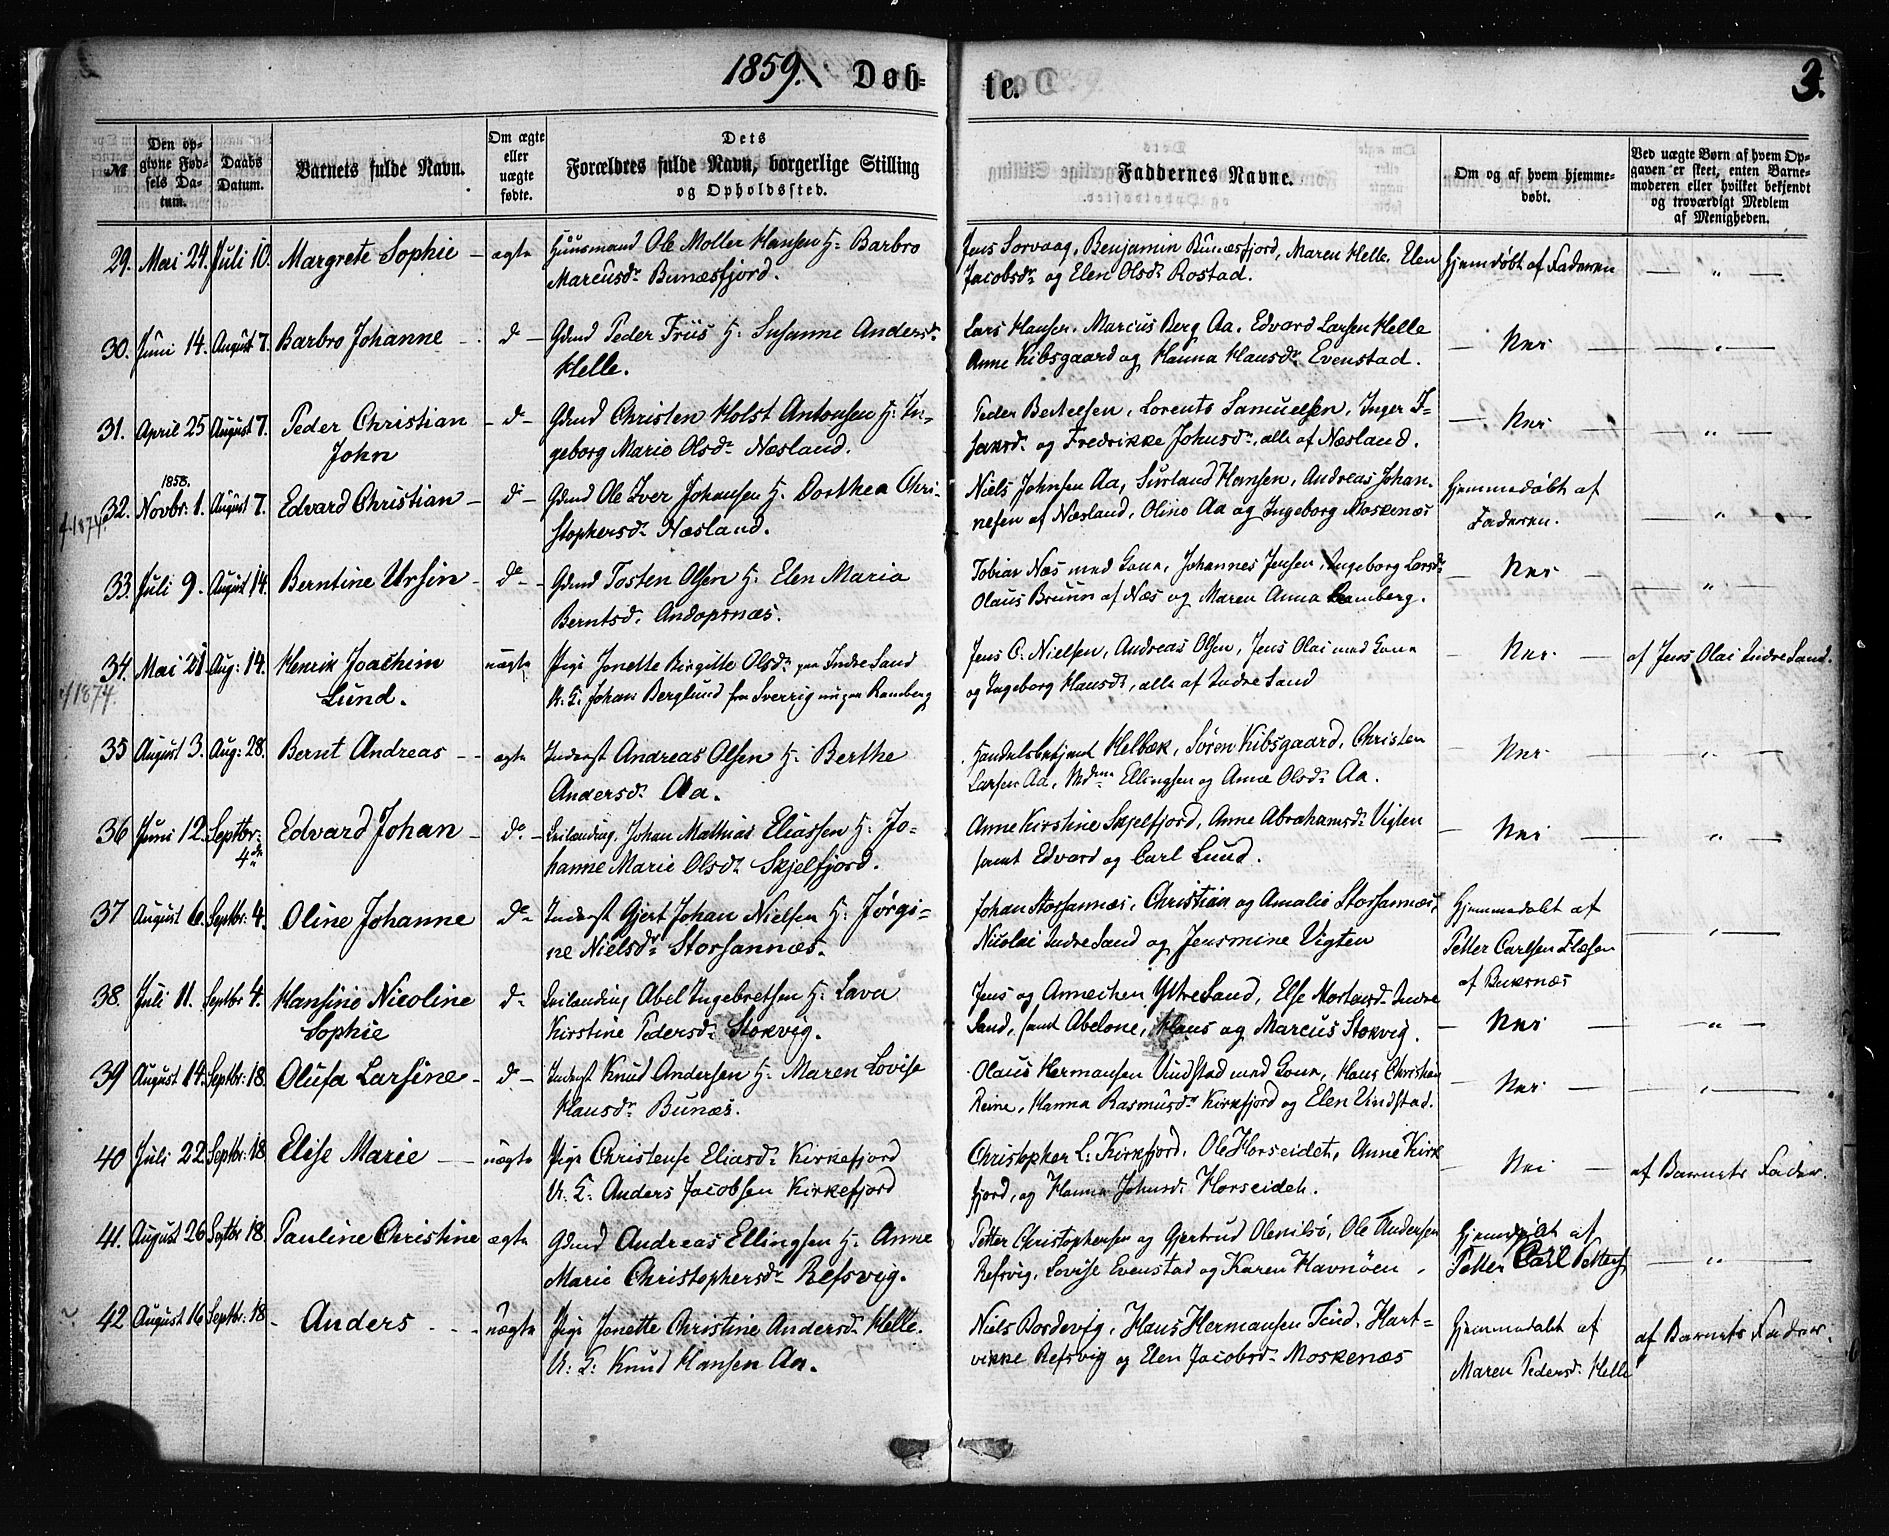 1859. Døb- te. 3.
№
Den op-
givne Fød-
sels Da-
tum.
Daabs
Datum.
Barnets fulde Navn.
Om ægte
eller
uægte
fødte.
Dets
Forældres fulde Navn, borgerlige Stilling
og Opholdssted.
Faddernes Navne.
Om og af hvem hjemme-
døbt.
Ved uægte Børn af hvem Op-
gaven er skeet, enten Barne-
moderen eller hvilket bekjendt
og troværdigt Medlem
af Menigheden.
29. Mai 24. Juli 10. Margrete Sophie - ægte Huusmand Ole Moller Hansen H: Barbro
Marcusdr Bunæsfjord.
Jens Sorvaag, Benjamin Bunæsfjord, Maren Helle, Elen
Jacobsdr og Elen Olsdr Rostad.
Hjemdøbt af Faderen — " —
30. Juni 14. August 7. Barbro Johanne - do - Gdmd Peder Friis H: Susanne Andersdr
Helle.
Lars Hansen, Marcus Berg Aa, Edvard Larsen Helle
Anne Kibsgaard og Hanna Hansdr Evenstad.
— Nei — " —
31. April 25 August 7. Peder Christian
John
- do - Gdmd Christen Holst Antonsen H: In-
geborg Marie Olsdr Næsland.
Peder Bertelsen, Lorents Samuelsen, Inger I-
saksdr og Fredrikke Johnsdr, alle af Næsland.
— Nei — " —
f 1874
32. 1858. Novbr: 1. August 7. Edvard Christian - do - Gdmd Ole Iver Johansen H: Dorthea Chri-
stophersdr Næsland.
Niels Johnsen Aa, Hansen, Andreas Johan-
nesen af Næsland, Oline Aa og Ingeborg Moskenæs
Hjemmedøbt af
Faderen. — " —
33. Juli 9. August 14. Berntine Ursin - do - Gdmd Tosten Olsen H: Elen Maria
Berntsdr Andopsnæs.
Tobias Næs med Kona, Johannes Jensen, Ingeborg Larsdr
Olaus Bruun af Næs og Maren Anna Ramberg.
— Nei — " —
f 1874.
34. Mai 21 Aug: 14. Henrik Joachim
Lund.
uægte Pige Jonette Birgitte Olsdr paa Indre Sand
U: F: Johan Berglund fra Sverrig nu paa Ramberg
Jens C. Nielsen, Andreas Olsen, Jens Olai med Kona
og Ingeborg Hansdr, alle af Indre Sand
— Nei — af Jens Olai Indre Sand.
35 August 3. Aug: 28. Bernt Andreas - ægte Inderst Andreas Olsen H: Berthe
Andersdr Aa.
Handelsbetjent Helbæk, Søren Kibsgaard, Christen
Larsen Aa, Mdme Ellingsen og Anne Olsdr Aa.
— Nei — " —
36 Juni 12. Septbr:
4de
Edvard Johan - do - Leilænding Johan Mathias Eliassen H: Jo-
hanne Marie Olsdr Skjelfjord.
Anne Kirstine Skjelfjord, Anne Abrahamsdr Vigten
samt Edvard og Carl Lund.
— Nei — " —
37 August 6. Septbr: 4. Oline Johanne do Inderst Gjert Johan Nielsen H: Jørgi-
ne Nielsdr Storsannæs.
Johan Storsannæs, Christian og Amalie Storsannæs,
Nicolai Indre Sand og Jensmine Vigten
Hjemmedøbt af
Petter Carlsen Flæsen
af Buksnæs — " —
38. Juli 11. Septbr 4. Hansine Nicoline
Sophie
do Leilænding Abel Ingebretsen H: Lava
Kirstine Pedersdr Stokvig.
Jens og Annechen Yttre Sand, Else Mortensdr Indre
Sand, samt Abelone, Klaus og Marcus Stokvig.
— Nei — " —
39 August 14. Septbr: 18. Olufa Larsine - do - Inderst Knud Andersen H: Maren Lovise
Hansdr Bunæs.
Olaus Hermansen Vindstad med Kona, Hans Christian
Reine, Hanna Rasmusdr Kirkefjord og Elen Vindstad.
— Nei — " —
40 Juli 22. Septbr: 18 Elise Marie — uægte Pige Christense Eliasdr Kirkefjord
U: F: Anders Jacobsen Kirkefjord
Christopher L: Kirkfjord, Ole Horseidet, Anne Kirk
fjord, og Hanna Johnsdr Horseidet.
— Nei — af Barnets Fader.
41. August 26 Septbr 18 Pauline Christine ægte Gdmd Andreas Ellingsen H: Anne
Marie Christophersdr Refsvig.
Petter Christophersen og Gjertrud Olenilsø, Ole Andersen
Refsvig, Lovise Evenstad og Karen Havnøen.
Hjemdøbt af
Petter Carl Petters — " —
42 August 16 Septbr: 18 - Anders - - uægte Pige Jonette Christine Andersdr Helle.
U: F: Knud Hansen Aa.
Niels Bordevig, Hans Hermansen Tind, Hart-
vikke Refsvig og Elen Jacobsdr Moskenæs
Hjemmedøbt af
Maren Pedersdr Helle
af Barnets Fader.